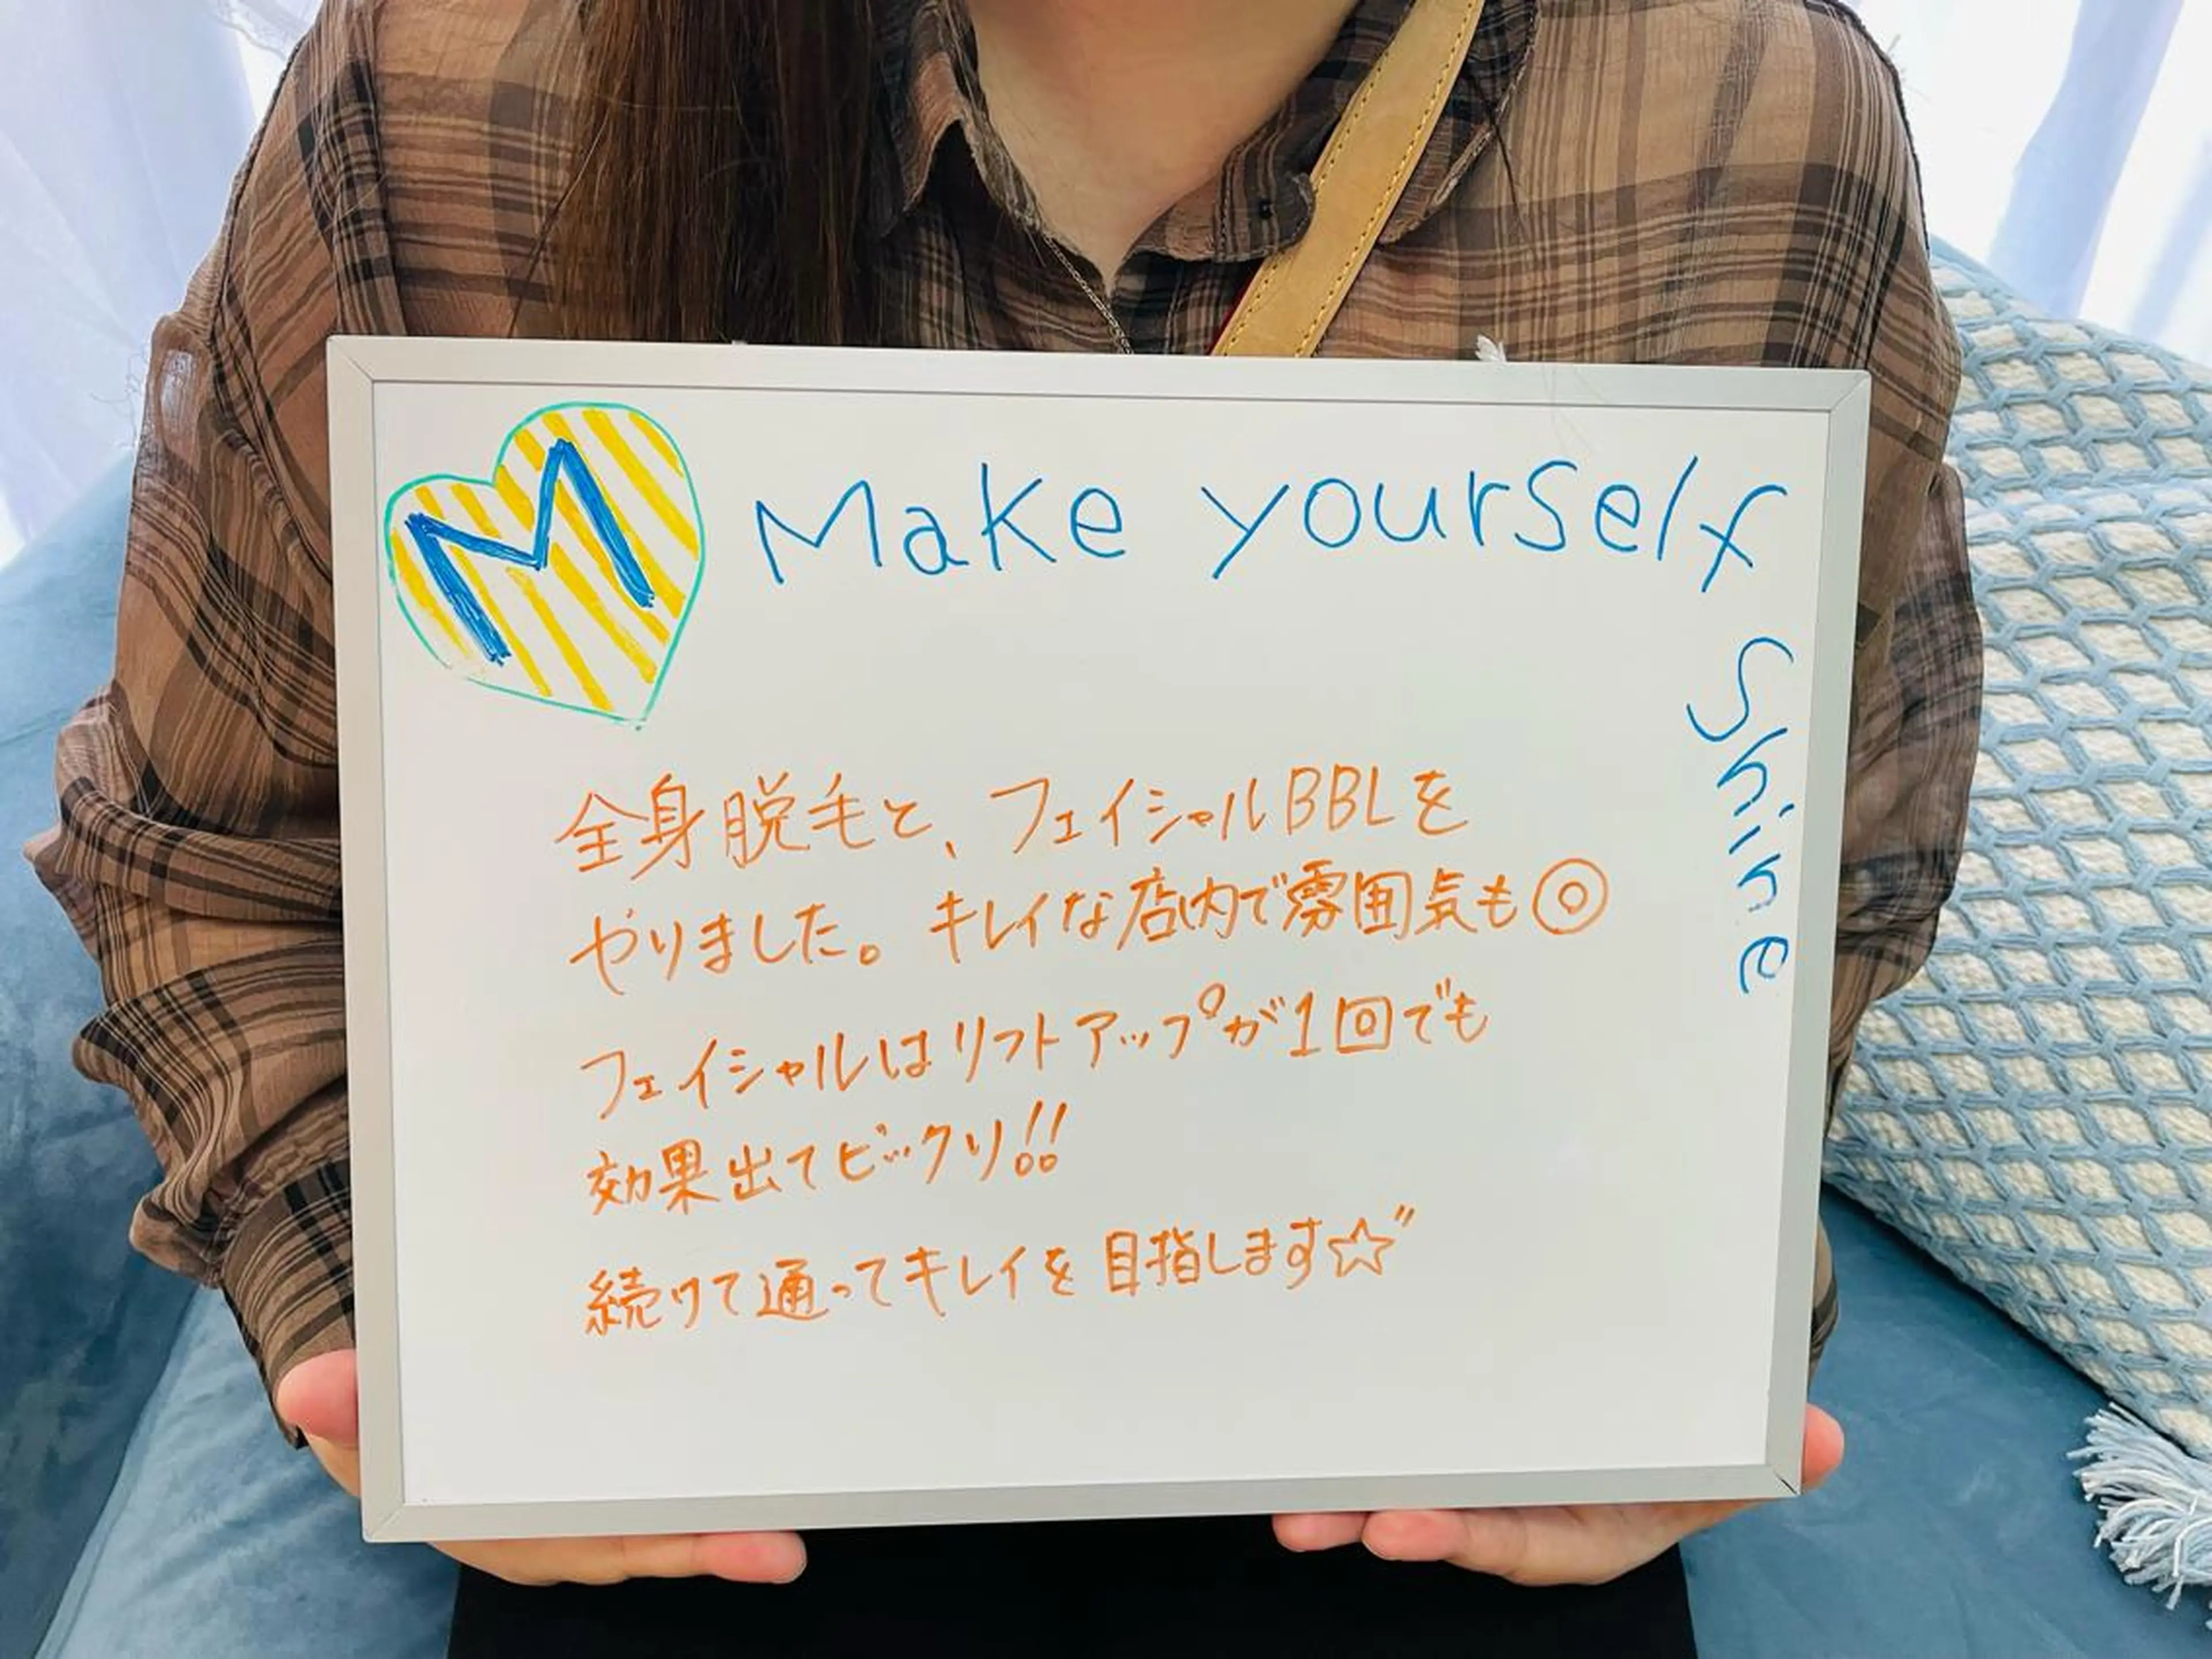 M
Make yourself
Shine
全身脱毛と、フェイシャルBBLを
やりました。キレイな店内で雰囲気も◎
フェイシャルはリフトアップが1回でも
効果出てビックリ!!
続けて通ってキレイを目指します☆"